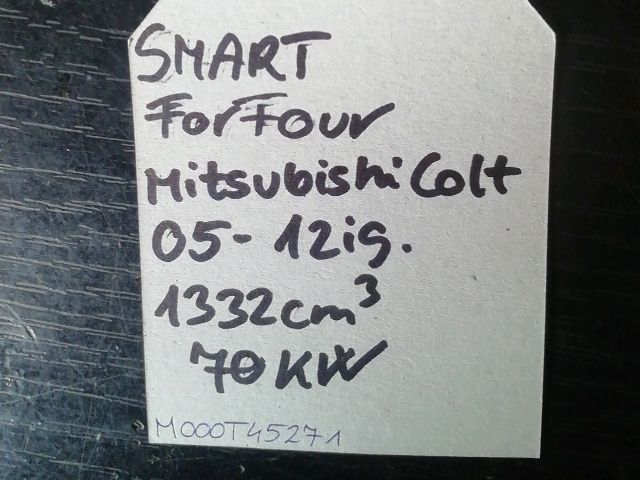 SMART
ForFour
Mitsubishi Colt
05-12ig.
1332cm³
70KW
M000T45271